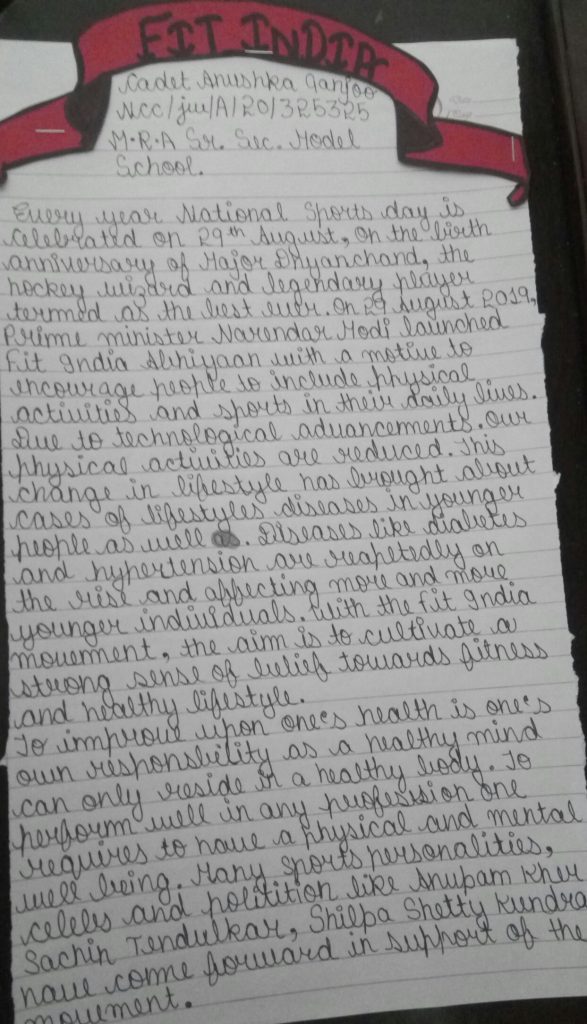 FIT INDIA
Cadet Anushka Ganjoo
NCC/jw/A/20/325325
M.R.A Sr. Sec. Model
School.
Every year National Sports day is
celebrated on 29th August, On the birth
anniversary of Major Dhyanchand, the
hockey wizard and legendary player
termed as the best ever. On 29 August 2019,
Prime minister Narendar Modi launched
Fit India Abhiyaan with a motive to
encourage people to include physical
activities and sports in their daily lives.
Due to technological advancements. Our
physical activities are reduced. This
change in lifestyle has brought about
cases of lifestyles diseases in younger
people as well . Diseases like diabetes
and hypertension are reapetedly on
the rise and affecting more and more
younger individuals. With the fit India
movement, the aim is to cultivate a
strong sense of belief towards fitness
and healthy lifestyle.
To improve upon one's health is one's
own responsbility as a healthy mind
can only reside in a healthy body. To
perform well in any profession one
requires to have a physical and mental
well being. Many sports personalities,
celebs and polition like Anupam Kher
Sachin Tendulkar, Shilpa Shetty Kundra
have come forward in support of the
movement.